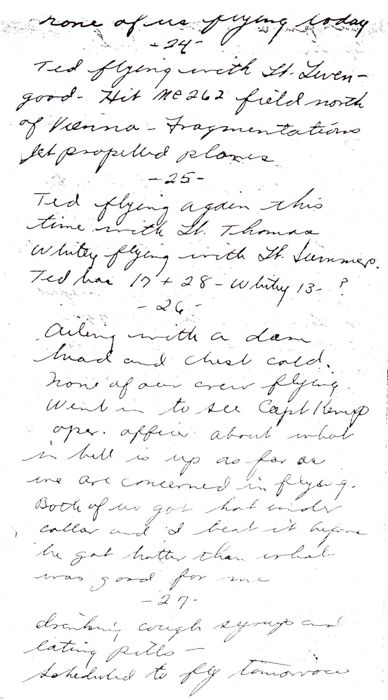 none of us flying today
- 24 -
Ted flying with Lt. Liven-
good - Hit ME 262 field north
of Vienna - Fragmentations
Jet propelled planes
- 25 -
Ted flying again this
time with Lt. Thomas
Whitey flying with Lt. Summers.
Ted has 17 + 28 - Whitey 13 - ?
- 26 -
Ailing with a dam
head and chest cold.
None of our crew flying.
Went in to see Capt Kemp
oper. office about what
in hell is up as far as
we are concerned in flying.
Both of us got hot under
collar and I beat it before
he got hotter than what
was good for me
- 27 -
drinking cough syrup and
eating pills -
scheduled to fly tomorrow